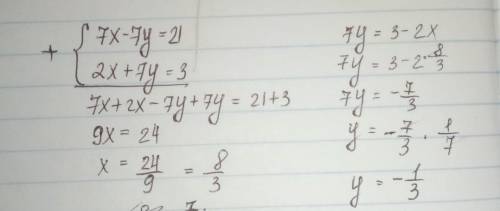 + { 7x-7y=21
2x+7y=3
7x+2x-7y+7y=21+3
9x=24
x = 24/9 = 8/3
7y=3-2x
7y=3-2·8/3
7y=-7/3
y=-7/3·1/7
y=-1/3